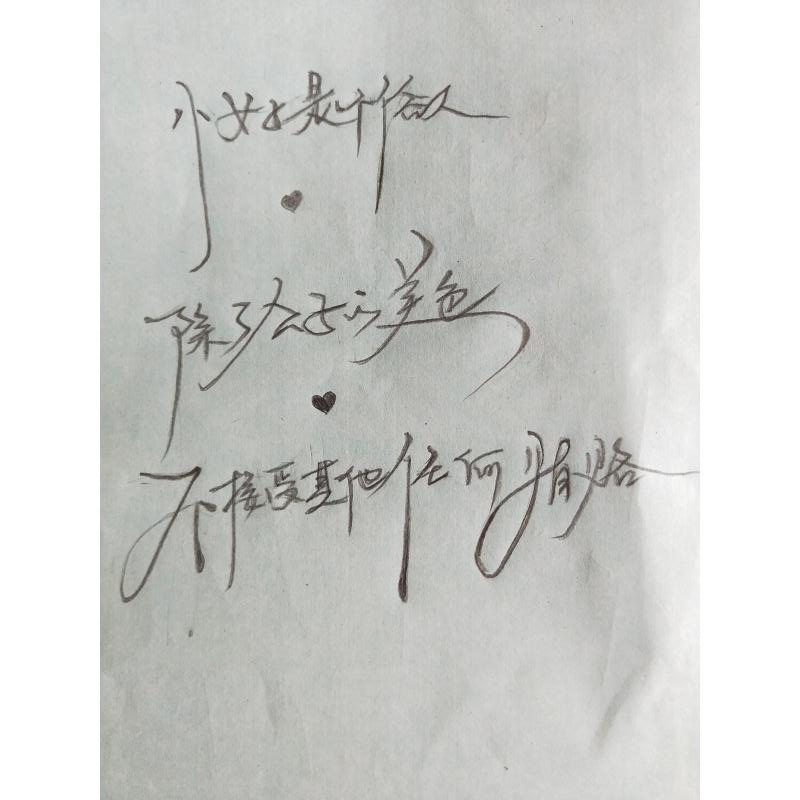 小女子是个俗人
除了公子的美色
不接受其他任何贿赂